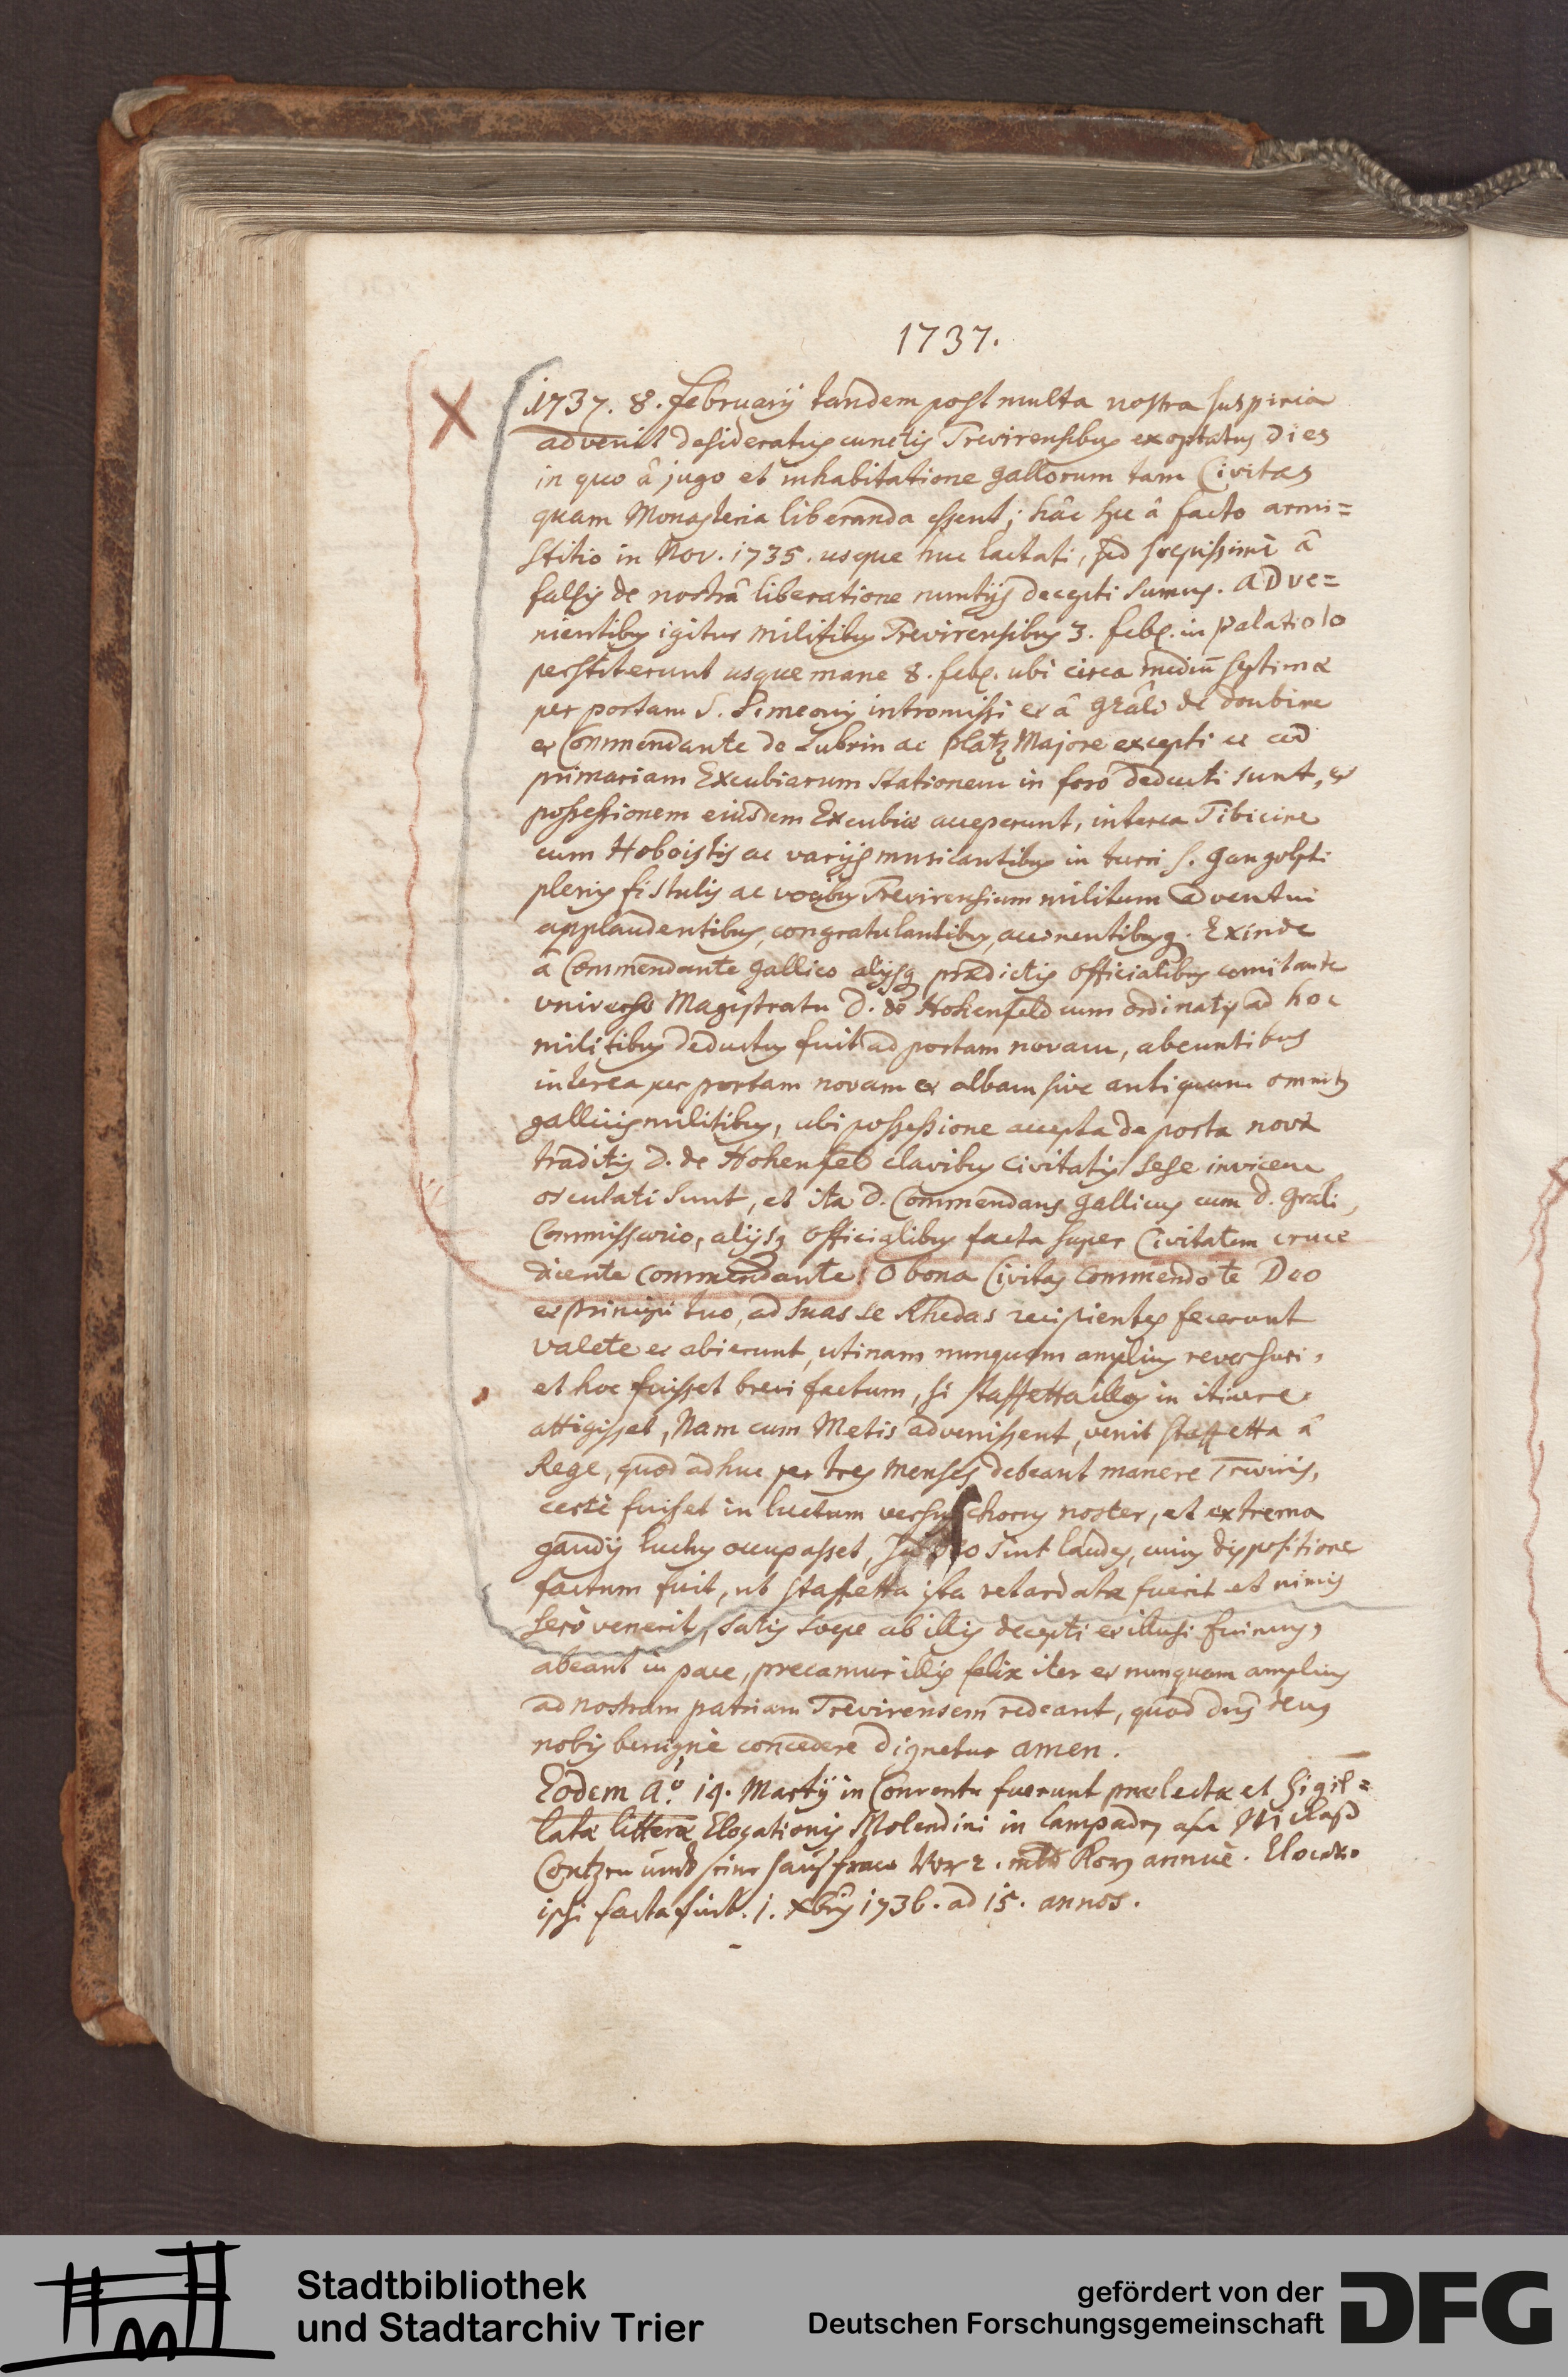 1737.
1737. 8. februarij tandem post multa nostra suspiria
advenit desideratus cunctis Trevirensibus exoptatus dies
in quo â jugo et inhabitatione gallorum tam Civitas
quam Monasteria liberanda essent; hâc â facto armi=
stitio in Nov. 1735. usque huc lactati, sed sæpissimè â
falsis de nostrâ liberatione nuntijs decepti sumus. adve=
nientibus igitur militibus Trevirensibus 3. feb. in palatiolo
perstiterunt usque mane 8. feb. ubi circa mediū septimæ
per portam S. Simeonis intromissi et â grâli de doubine
et Commendante de Lubrin ac platz Majore excepti et ad
primariam Excubiarum stationem in foro deducti sunt, et
possessionem eiusdem Excubiæ acceperunt, interea Tibicine
cum Hoboistis ac varijs musicantibus in turri S. gangolphi
plenis fistulis ac vocibus Trevirensium militum adventui
applaudentibus, congratulantibus, accinentibusq. Exinde
â Commendante gallico alijsq prædictis officialibus comitante
universo Magistratu D. de Hohenfeld cum ordinatis ad hoc
militibus deductus fuit ad portam novam, abeuntibus
interea per portam novam et albam sive antiquam omnib
gallicis militibus, ubi possessione accepta de porta nova
traditis D. de Hohenfeld clavibus civitatis sese invicem
osculati sunt, et ita D. Commendans gallicus cum D. grali
Commissario, alijsq officialibus facta super Civitatem cruce
dicente Commendante: O bona Civitas commendo te Deo
et principi tuo, ad suas se Rhedas recipientes fecerunt
valete et abierunt, utinam nunquam amplius reversuri,
et hoc fuisset brevi factum, si staffetta illos in itinere
attigisset, Nam cum Metis advenissent, venit staffetta â
Rege, quod adhuc per tres menses debeant manere Treviris,
certè fuisset in luctum versus chorus noster, et extrema
gaudij luctus occupasset, sed Deo sint laudes, cuius dispositione
factum fuit, ut staffetta ista retardata fuerit et nimis
serò venerit, satis sæpe ab illis decepti et illusi fuimus,
abeant in pace, precamur illis felix iter et nunquam amplius
ad nostram patriam Trevirensem redeant, quod dns deus
nobis benignè concedere dignetur amen.
Eodem aº. 19. Martij in Conventu fuerunt prælectæ et sigil=
latæ litteræ Elocationis Molendini in Lampaden Niclaß
Contzen undt seine haußfraw vor 2. mltr Korn annuè. Elocatio
ipsi facta fuit. 1. xbris 1736. ad 15. annos.
Stadtbibliothek
und Stadtarchiv Trier
gefördert von der
Deutschen Forschungsgemeinschaft
DFG